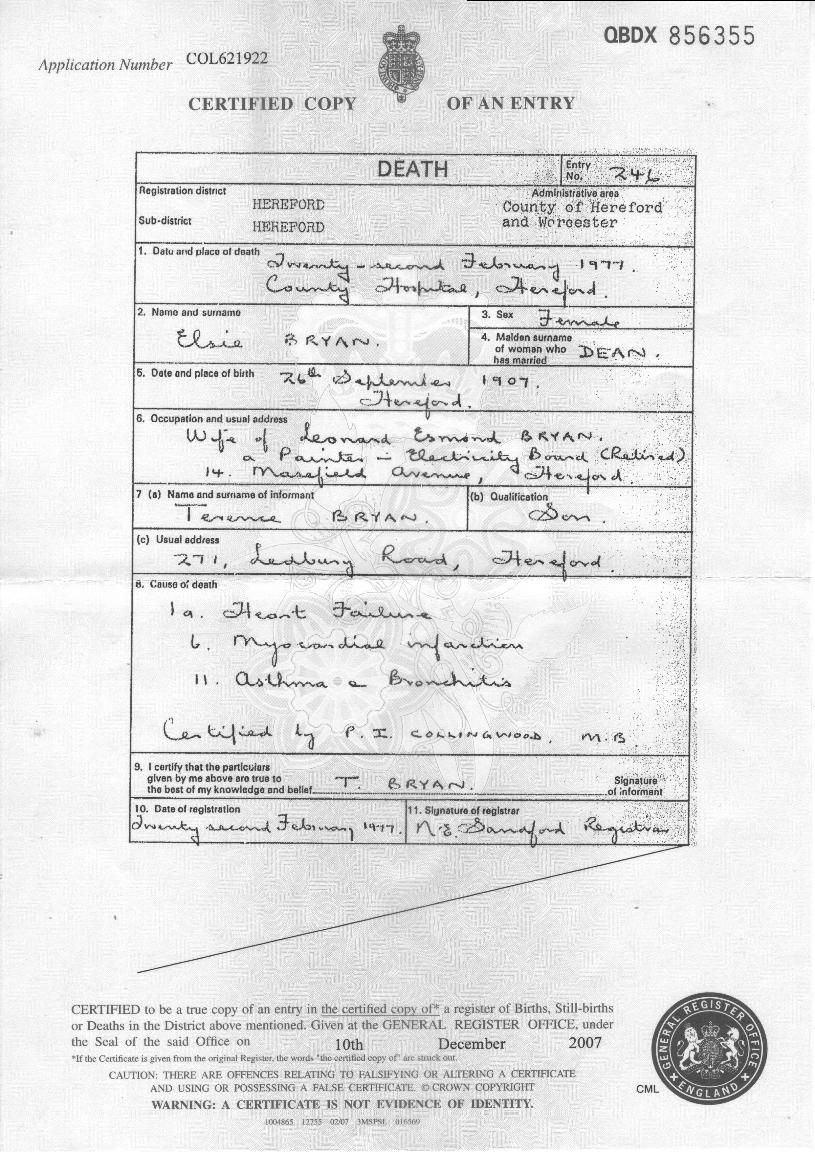 QBDX 856355
Application Number COL621922
CERTIFIED COPY OF AN ENTRY
DEATH
Entry No. 246
Registration district HEREFORD
Administrative area
County of Hereford and Worcester
Sub-district HEREFORD
1. Date and place of death Twenty-second February 1977.
County Hospital, Hereford.
2. Name and surname
Elsie BRYAN.
3. Sex Female
4. Maiden surname of woman who has married DEAN.
5. Date and place of birth 26th September 1907.
Hereford.
6. Occupation and usual address
Wife of Leonard Esmond BRYAN.
a Painter - Electricity Board (Retired)
14. Masefield Avenue, Hereford.
7 (a) Name and surname of informant
Terence BRYAN.
(b) Qualification
Son.
(c) Usual address
271, Ledbury Road, Hereford.
8. Cause of death
1a. Heart Failure
b. Myocardial infarction
11. Asthma & Bronchitis
Certified by P. I. COLLINGWOOD. M.B
9. I certify that the particulars
given by me above are true to
the best of my knowledge and belief. T. BRYAN. Signature of informant
10. Date of registration
Twenty second February 1977.
11. Signature of registrar
N.E. Sandford Registrar
CERTIFIED to be a true copy of an entry in the certified copy of* a register of Births, Still-births
or Deaths in the District above mentioned. Given at the GENERAL REGISTER OFFICE, under
the Seal of the said Office on 10th December 2007
*If the Certificate is given from the original Register, the words "the certified copy of" are struck out.
CAUTION: THERE ARE OFFENCES RELATING TO FALSIFYING OR ALTERING A CERTIFICATE
AND USING OR POSSESSING A FALSE CERTIFICATE. © CROWN COPYRIGHT
WARNING: A CERTIFICATE IS NOT EVIDENCE OF IDENTITY.
1004865 12755 02/07 3MSPSL 016569
CML
GENERAL REGISTER OFFICE
ENGLAND